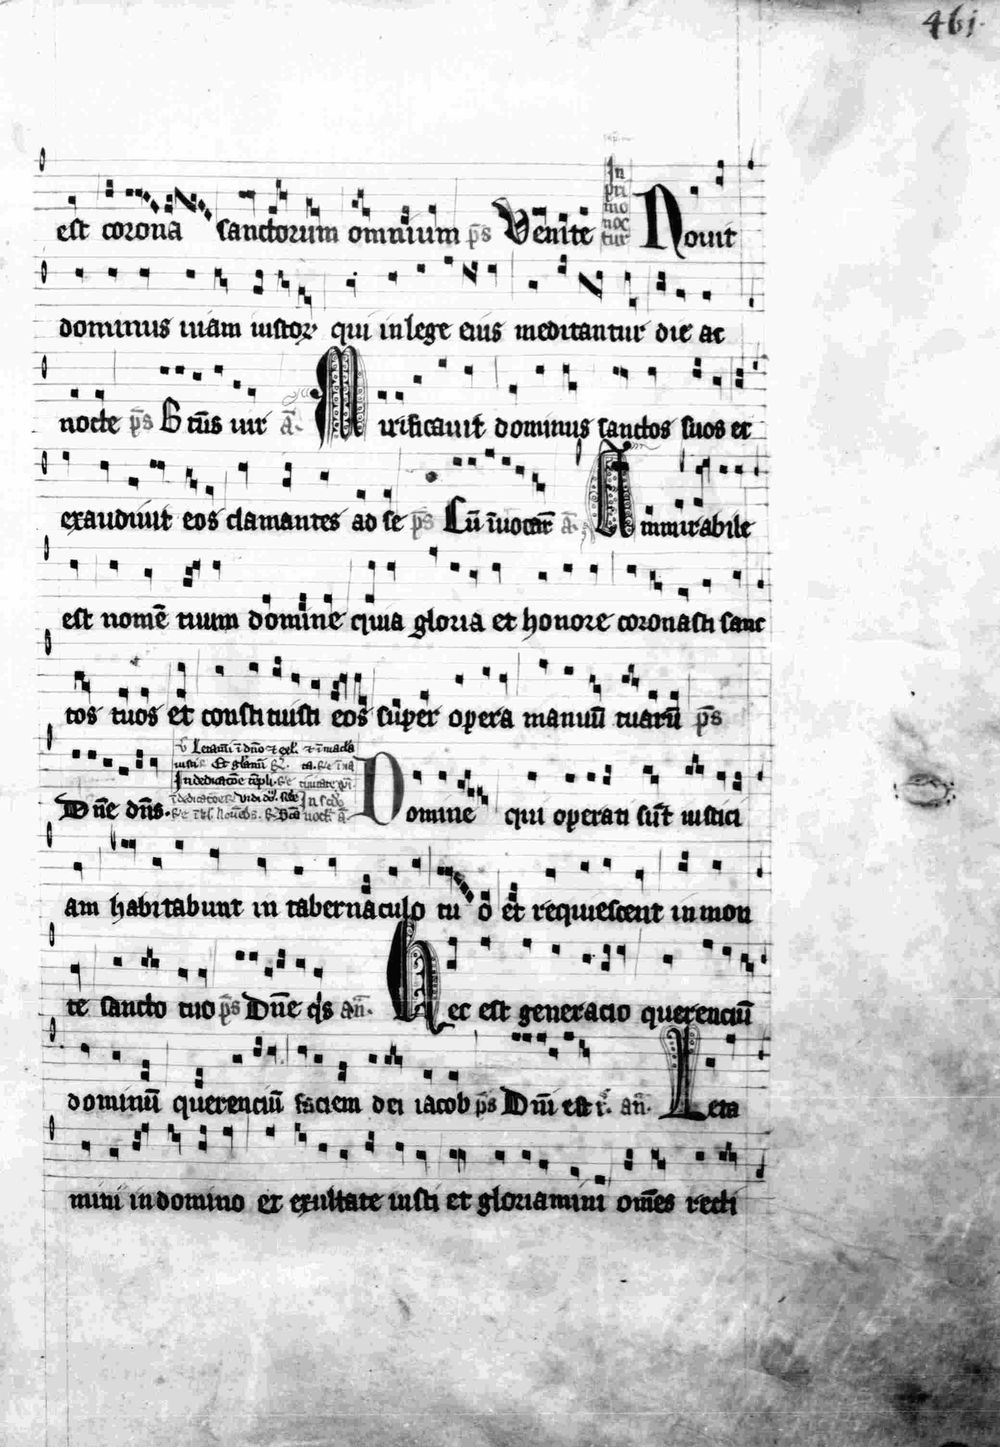 461.
est corona sanctorum omnium p̄s Venite In primo noctur Nouit
dominus uiam iustoꝝ qui in lege eius meditantur die ac
nocte p̄s Btūs uir ā. Mirificauit dominus sanctos suos et
exaudiuit eos clamantes ad se p̄s Cū īuocar̄ ā. Ammirabile
est nomē tuum domine quia gloria et honore coronasti sanc
tos tuos et constituisti eos super opera manuū tuarū p̄s
Dn̄e dn̄s. Domine qui operati sūt iustici
am habitabunt in tabernaculo tuo et requiescent in mon
te sancto tuo p̄s Dn̄e q̄s an̄. Hec est generacio querenciū
dominū querenciū faciem dei iacob p̄s Dn̄i est t̄. an̄. Leta
mini in domino et exultate iusti et gloriamini om̄es recti